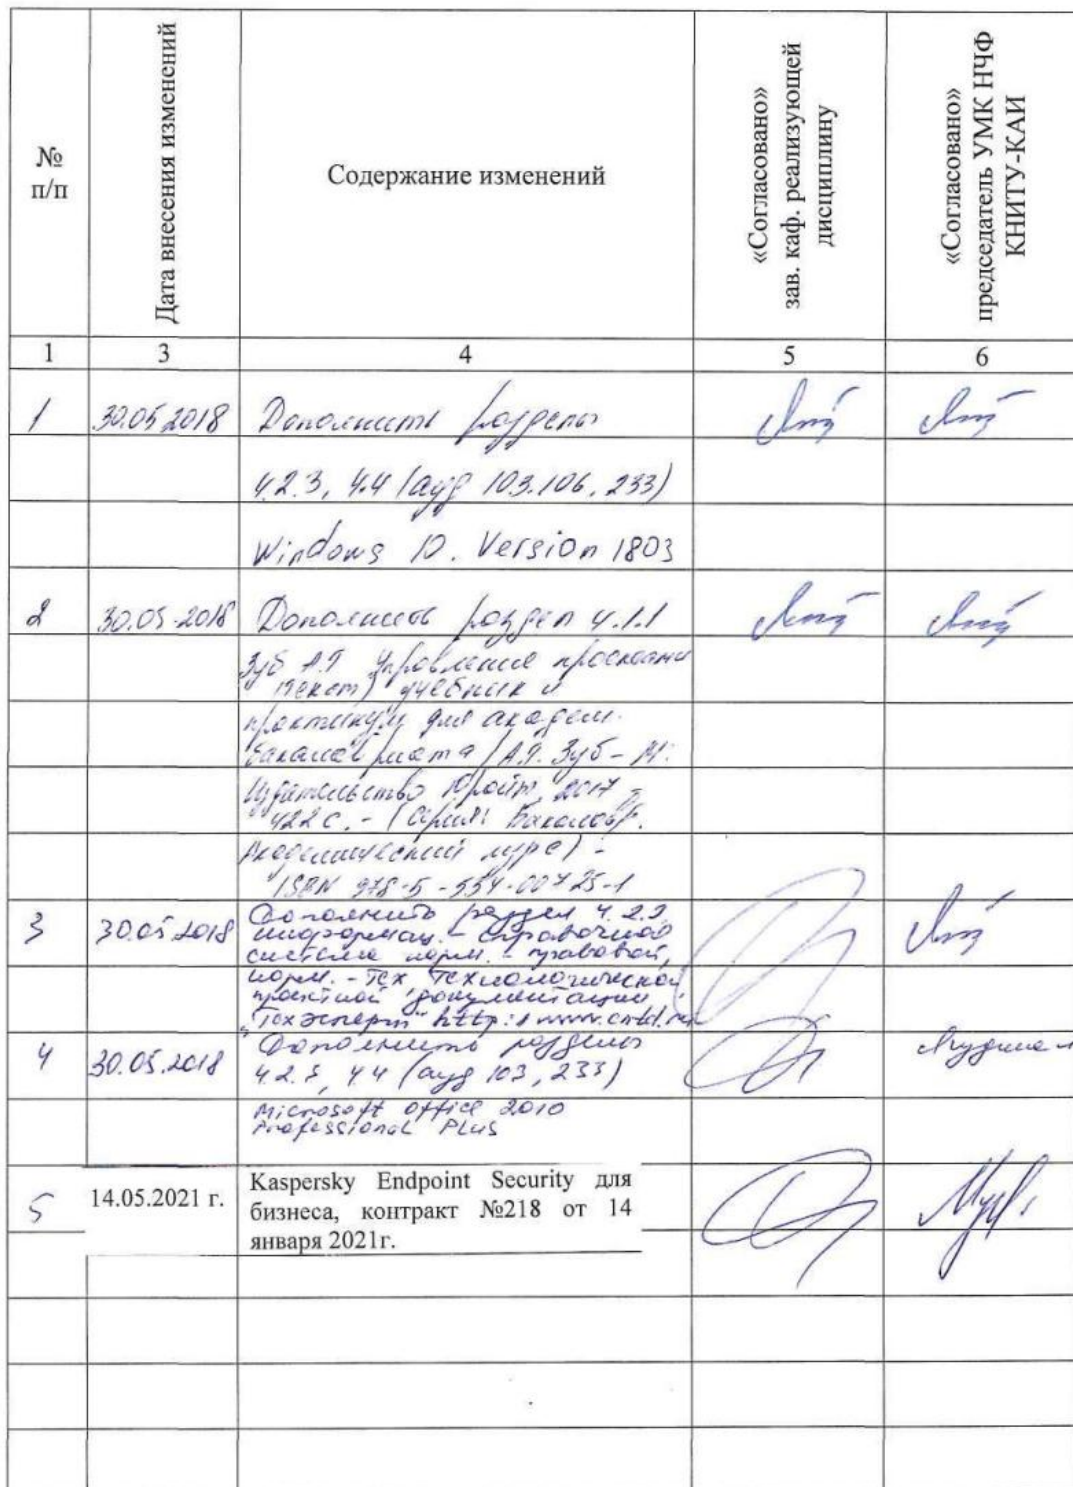 №
п/п
Дата внесения изменений
Содержание изменений
«Согласовано»
зав. каф. реализующей
дисциплину
«Согласовано»
председатель УМК НЧФ
КНИТУ-КАИ
1 3 4 5 6
1 30.05.2018 Дополнить разделы
4.2.3, 4.4 (ауд 103.106, 233)
Windows 10. Version 1803
2 30.05.2018 Дополнить раздел 4.1.1
Зуб А.Т Управление проектами
(текст) учебник и
практикум для академ.
бакалавриата / А.Т. Зуб – М:
Издательство Юрайт, 2017 –
422 с. – (Серия: Бакалавр.
Академический курс) –
ISBN 978-5-534-00725-1
3 30.05.2018 Дополнить раздел 4.2.2
информац. – справочная
система норм. – правовой,
норм. – тех технологической
проектной документации
"Техэксперт" http://www.cntd.ru
4 30.05.2018 Дополнить разделы
4.2.3, 4.4 (ауд 103, 233)
Microsoft office 2010
Professional Plus
5 14.05.2021 г. Kaspersky Endpoint Security для
бизнеса, контракт №218 от 14
января 2021г.